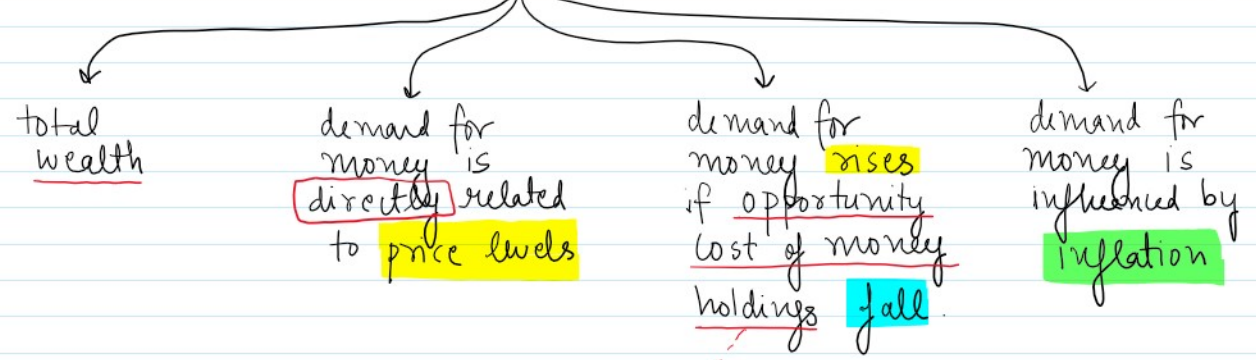 total
wealth
demand for
money is
directly related
to price levels
demand for
money rises
if opportunity
cost of money
holdings fall.
demand for
money is
influenced by
inflation